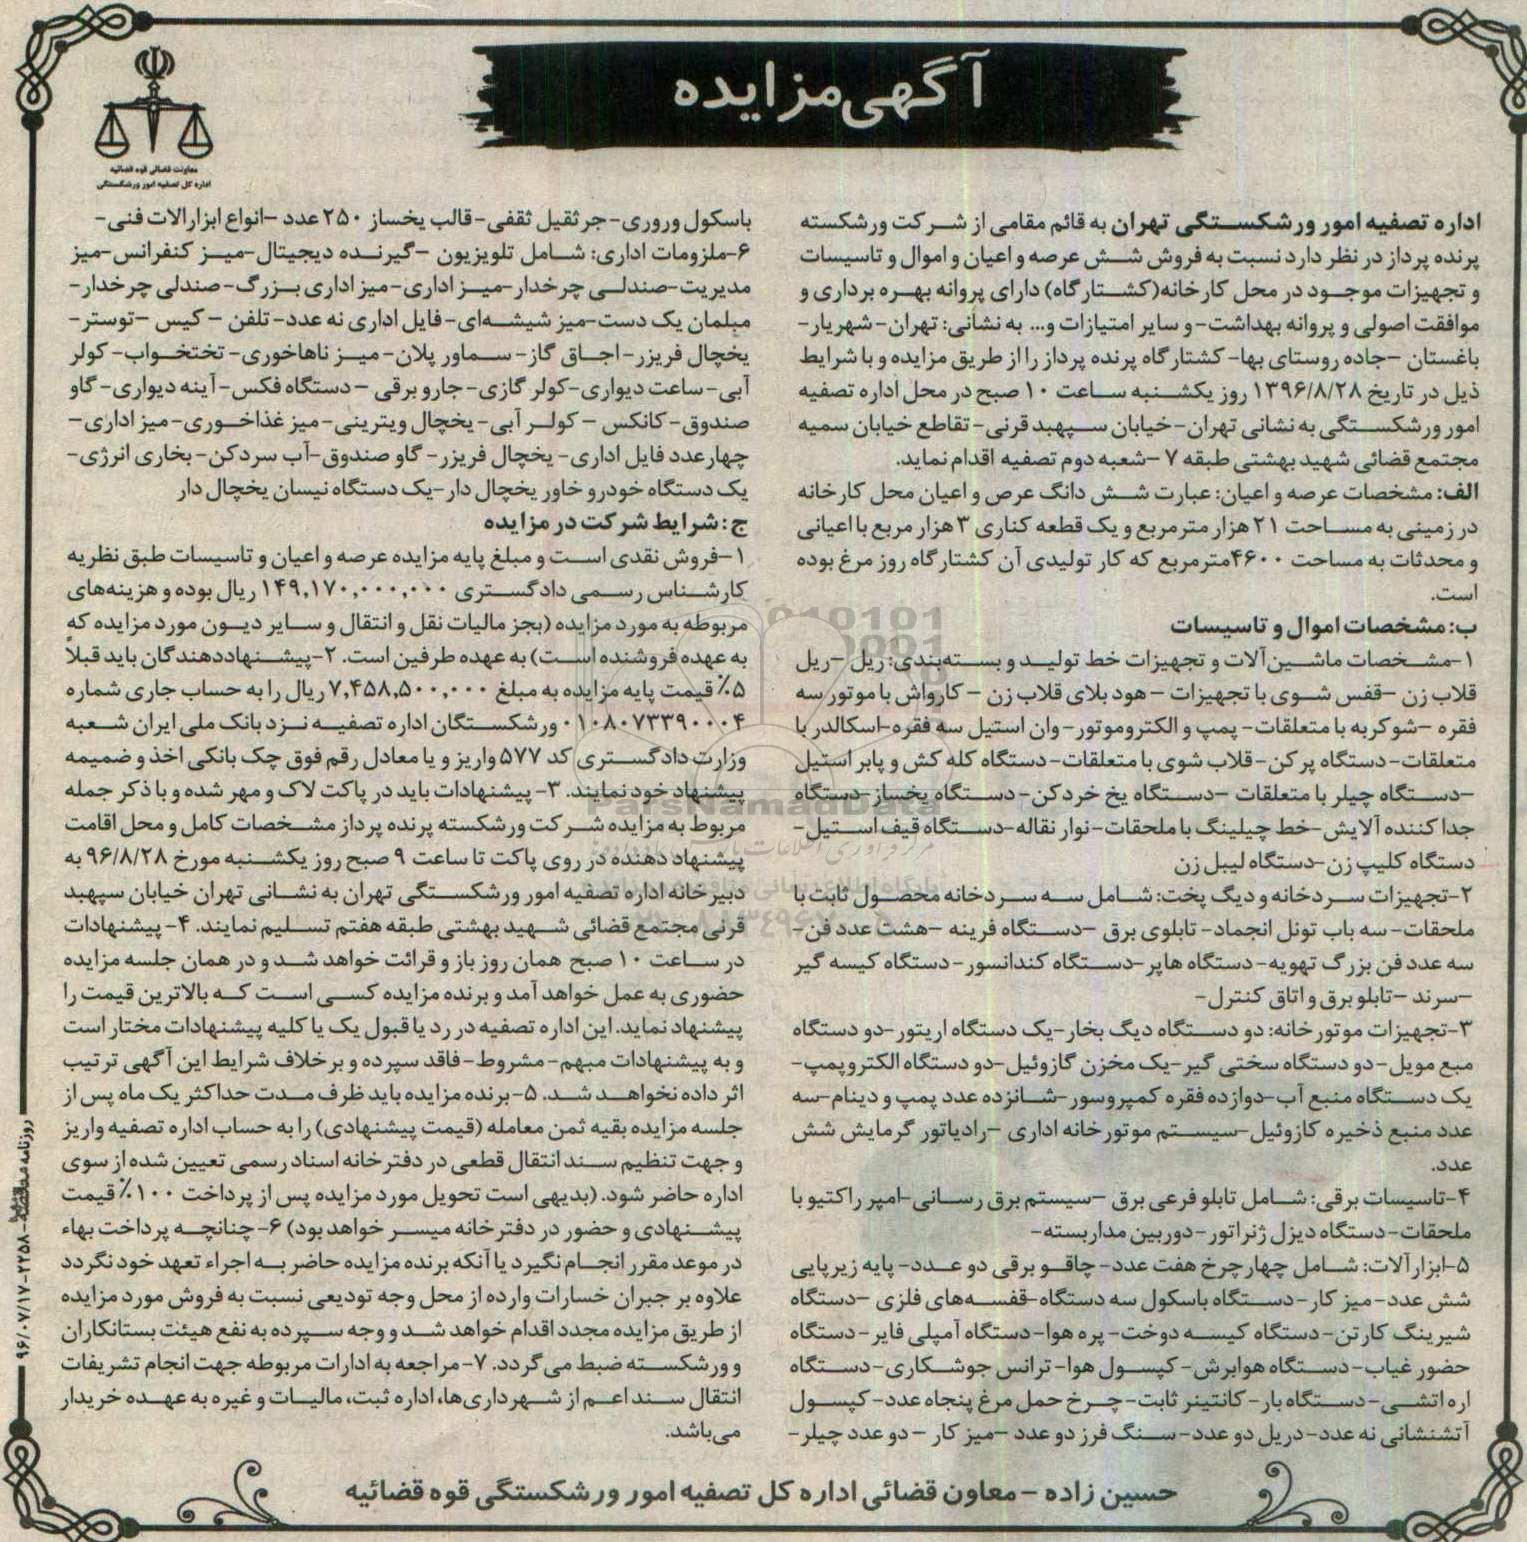 آگهی مزایده
معاونت قضائی قوه قضائیه
اداره کل تصفیه امور ورشکستگی
اداره تصفیه امور ورشکستگی تهران به قائم مقامی از شرکت ورشکسته
پرنده پرداز در نظر دارد نسبت به فروش شش عرصه و اعیان و اموال و تاسیسات
و تجهیزات موجود در محل کارخانه(کشتارگاه) دارای پروانه بهره برداری و
موافقت اصولی و پروانه بهداشت- و سایر امتیازات و... به نشانی: تهران- شهریار-
باغستان –جاده روستای بها- کشتارگاه پرنده پرداز را از طریق مزایده و با شرایط
ذیل در تاریخ ۱۳۹۶/۸/۲۸ روز یکشنبه ساعت ۱۰ صبح در محل اداره تصفیه
امور ورشکستگی به نشانی تهران- خیابان سپهبد قرنی- تقاطع خیابان سمیه
مجتمع قضائی شهید بهشتی طبقه ۷ –شعبه دوم تصفیه اقدام نماید.
الف: مشخصات عرصه و اعیان: عبارت شش دانگ عرص و اعیان محل کارخانه
در زمینی به مساحت ۲۱ هزار مترمربع و یک قطعه کناری ۳ هزار مربع با اعیانی
و محدثات به مساحت ۴۶۰۰مترمربع که کار تولیدی آن کشتارگاه روز مرغ بوده
است.
ب: مشخصات اموال و تاسیسات
۱-مشخصات ماشین‌آلات و تجهیزات خط تولید و بسته‌بندی: ریل –ریل
قلاب زن –قفس شوی با تجهیزات – هود بلای قلاب زن – کارواش با موتور سه
فقره –شوکربه با متعلقات- پمپ و الکتروموتور- وان استیل سه فقره-اسکالدر با
متعلقات- دستگاه پرکن- قلاب شوی با متعلقات- دستگاه کله کش و پابر استیل
–دستگاه چیلر با متعلقات –دستگاه یخ خردکن- دستگاه یخساز-دستگاه
جدا کننده آلایش-خط چیلینگ با ملحقات- نوار نقاله-دستگاه قیف استیل-
دستگاه کلیپ زن-دستگاه لیبل زن
۲-تجهیزات سردخانه و دیگ پخت: شامل سه سردخانه محصول ثابت با
ملحقات- سه باب تونل انجماد- تابلوی برق –دستگاه فرینه –هشت عدد فن-
سه عدد فن بزرگ تهویه- دستگاه هایر-دستگاه کندانسور- دستگاه کیسه گیر
–سرند –تابلو برق و اتاق کنترل-
۳-تجهیزات موتورخانه: دو دستگاه دیگ بخار-یک دستگاه اریتور-دو دستگاه
مبع مویل- دو دستگاه سختی گیر-یک مخزن گازوئیل-دو دستگاه الکتروپمپ-
یک دستگاه منبع آب-دوازده فقره کمپروسور-شانزده عدد پمپ و دینام-سه
عدد منبع ذخیره گازوئیل-سیستم موتورخانه اداری –رادیاتور گرمایش شش
عدد.
۴-تاسیسات برقی: شامل تابلو فرعی برق –سیستم برق رسانی-امپر راکتیو با
ملحقات- دستگاه دیزل ژنراتور- دوربین مداربسته-
۵-ابزارآلات: شامل چهارچرخ هفت عدد- چاقو برقی دو عدد- پایه زیرپایی
شش عدد- میز کار- دستگاه باسکول سه دستگاه-قفسه‌های فلزی –دستگاه
شیرینگ کارتن- دستگاه کیسه دوخت- پره هوا-دستگاه آمپلی فایر- دستگاه
حضور غیاب- دستگاه هوابرش- کپسول هوا- ترانس جوشکاری-دستگاه
اره اتشی- دستگاه بار- کانتینر ثابت- چرخ حمل مرغ پنجاه عدد- کپسول
آتشنشانی نه عدد-دریل دو عدد- سنگ فرز دو عدد –میز کار – دو عدد چیلر-
باسکول وروری- جرثقیل ثقفی- قالب یخساز ۲۵۰ عدد –انواع ابزارالات فنی-
۶-ملزومات اداری: شامل تلویزیون –گیرنده دیجیتال-میز کنفرانس-میز
مدیریت-صندلی چرخدار-میز اداری-میز اداری بزرگ- صندلی چرخدار-
مبلمان یک دست-میز شیشه‌ای- فایل اداری نه عدد- تلفن – کیس –توستر-
یخچال فریزر- اجاق گاز- سماور پلان- میز ناهاخوری- تختخواب- کولر
آبی- ساعت دیواری-کولر گازی- جارو برقی – دستگاه فکس- آینه دیواری- گاو
صندوق- کانکس – کولر آبی- یخچال ویترینی- میز غذاخوری- میز اداری-
چهارعدد فایل اداری- یخچال فریزر- گاو صندوق-آب سردکن- بخاری انرژی-
یک دستگاه خودرو خاور یخچال دار-یک دستگاه نیسان یخچال دار
ج: شرایط شرکت در مزایده
۱-فروش نقدی است و مبلغ پایه مزایده عرصه و اعیان و تاسیسات طبق نظریه
کارشناس رسمی دادگستری ۱۴۹,۱۷۰,۰۰۰,۰۰۰ ریال بوده و هزینه‌های
مربوطه به مورد مزایده (بجز مالیات نقل و انتقال و سایر دیون مورد مزایده که
به عهده فروشنده است) به عهده طرفین است. ۲-پیشنهاددهندگان باید قبلاً
۵٪ قیمت پایه مزایده به مبلغ ۷,۴۵۸,۵۰۰,۰۰۰ ریال را به حساب جاری شماره
۰۱۰۸۰۷۳۳۹۰۰۰۴ ورشکستگان اداره تصفیه نزد بانک ملی ایران شعبه
وزارت دادگستری کد ۵۷۷ واریز و یا معادل رقم فوق چک بانکی اخذ و ضمیمه
پیشنهاد خود نمایند. ۳- پیشنهادات باید در پاکت لاک و مهر شده و با ذکر جمله
مربوط به مزایده شرکت ورشکسته پرنده پرداز مشخصات کامل و محل اقامت
پیشنهاد دهنده در روی پاکت تا ساعت ۹ صبح روز یکشنبه مورخ ۹۶/۸/۲۸ به
دبیرخانه اداره تصفیه امور ورشکستگی تهران به نشانی تهران خیابان سپهبد
قرنی مجتمع قضائی شهید بهشتی طبقه هفتم تسلیم نمایند. ۴- پیشنهادات
در ساعت ۱۰ صبح همان روز باز و قرائت خواهد شد و در همان جلسه مزایده
حضوری به عمل خواهد آمد و برنده مزایده کسی است که بالاترین قیمت را
پیشنهاد نماید. این اداره تصفیه در رد یا قبول یک یا کلیه پیشنهادات مختار است
و به پیشنهادات مبهم- مشروط- فاقد سپرده و برخلاف شرایط این آگهی ترتیب
اثر داده نخواهد شد. ۵- برنده مزایده باید ظرف مدت حداکثر یک ماه پس از
جلسه مزایده بقیه ثمن معامله (قیمت پیشنهادی) را به حساب اداره تصفیه واریز
و جهت تنظیم سند انتقال قطعی در دفترخانه اسناد رسمی تعیین شده از سوی
اداره حاضر شود. (بدیهی است تحویل مورد مزایده پس از پرداخت ۱۰۰٪ قیمت
پیشنهادی و حضور در دفترخانه میسر خواهد بود) ۶- چنانچه پرداخت بهاء
در موعد مقرر انجام نگیرد یا آنکه برنده مزایده حاضر به اجراء تعهد خود نگردد
علاوه بر جبران خسارات وارده از محل وجه تودیعی نسبت به فروش مورد مزایده
از طریق مزایده مجدد اقدام خواهد شد و وجه سپرده به نفع هیئت بستانکاران
و ورشکسته ضبط می گردد. ۷- مراجعه به ادارات مربوطه جهت انجام تشریفات
انتقال سند اعم از شهرداری‌ها، اداره ثبت، مالیات و غیره به عهده خریدار
می‌باشد.
حسین زاده – معاون قضائی اداره کل تصفیه امور ورشکستگی قوه قضائیه
روزنامه
۲۲۵۸-۹۶/۰۷/۱۷
ParsNamadData